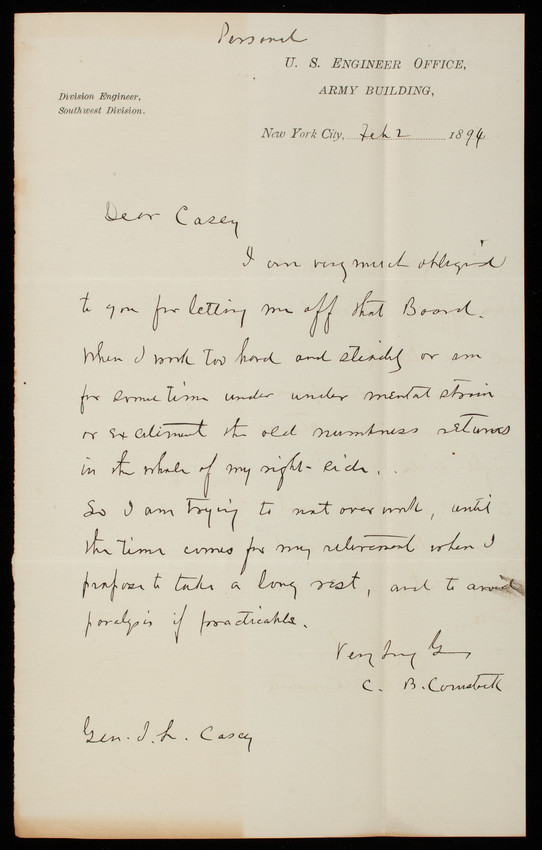 Personal
U. S. ENGINEER OFFICE,
ARMY BUILDING,
Division Engineer,
Southwest Division.
New York City, Feb 2 1894
Dear Casey
I am very much obliged
to you for letting me off that Board.
When I work too hard and steadily or am
for some time under under mental strain
or excitement the old numbness returns
in the whole of my right side.
So I am trying to not overwork, until
the time comes for my retirement when I
propose to take a long rest, and to avoid
paralysis if practicable.
Very truly
C. B. Comstock
Gen. T. L. Casey